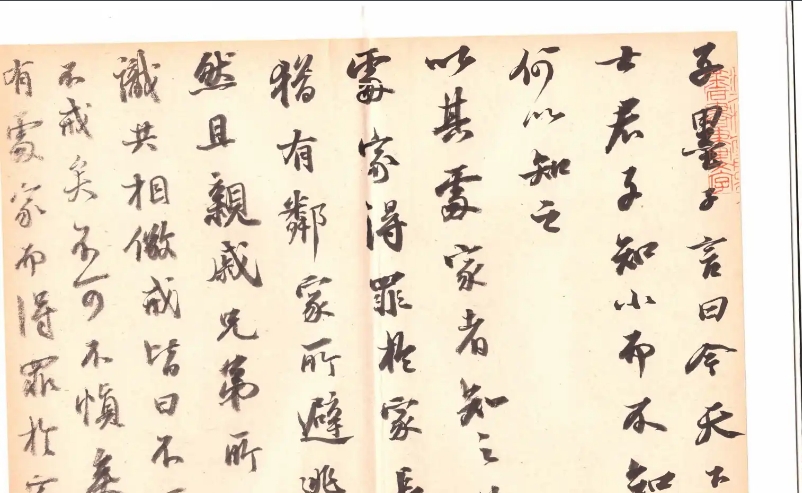 子墨子言曰今天下
士君子知小而不知
何以知之
以其處家者知之
處家得罪於家長
猶有鄰家所避逃
然且親戚兄弟所
識共相儆戒皆曰不
不戒矣不可不慎矣
有處家而得罪於家